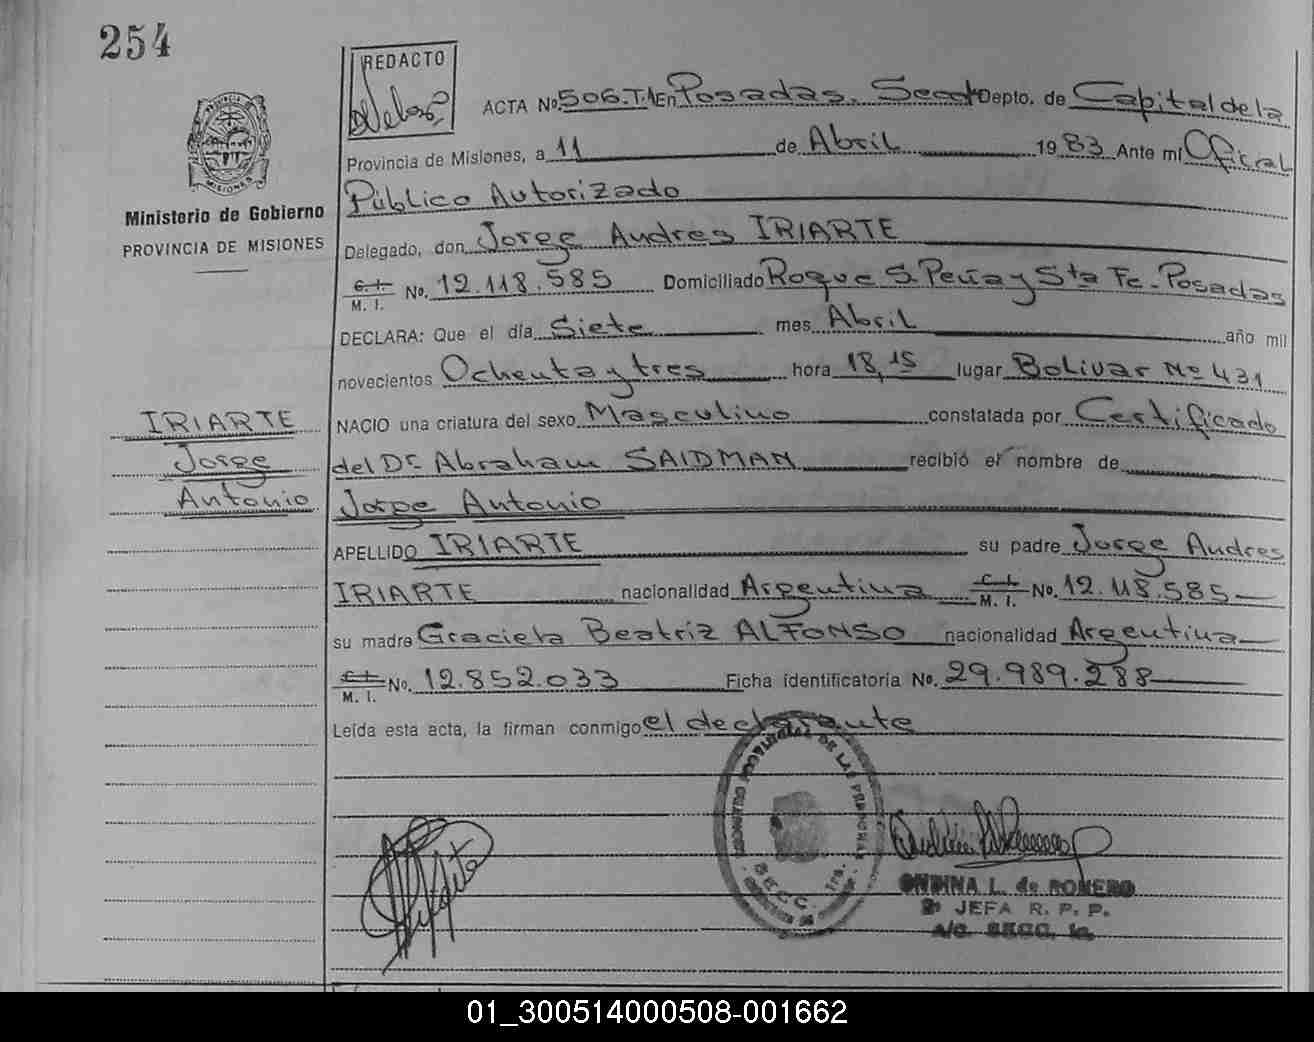 254
REDACTO
ACTA No. 506.T.1 En Posadas. Secc Depto. de Capital de la
Provincia de Misiones, a 11 de Abril 1983 Ante mí Oficial
Público Autorizado
Ministerio de Gobierno
PROVINCIA DE MISIONES
Delegado, don Jorge Andres IRIARTE
C. I.
M. I. No. 12.118.585 Domiciliado Roque S. Peña y Sta Fe - Posadas
DECLARA: Que el día Siete mes Abril año mil
novecientos Ochenta y tres hora 18,15 lugar Bolivar Nº 431
IRIARTE
Jorge
Antonio
NACIO una criatura del sexo Masculino constatada por Certificado
del Dr. Abraham SAIDMAN recibió el nombre de
Jorge Antonio
APELLIDO IRIARTE su padre Jorge Andres
IRIARTE nacionalidad Argentina C. I. M. I. No. 12.118.585
su madre Graciela Beatriz ALFONSO nacionalidad Argentina
C. I.
M. I. No. 12.852.033 Ficha identificatoria No. 29.989.288
Leída esta acta, la firman conmigo el declarante
REGISTRO PROVINCIAL DE LAS PERSONAS
SECC. 1ra.
ONDINA L. de ROMERO
2ª JEFA R. P. P.
a/c. SECC. 1a.
01_300514000508-001662